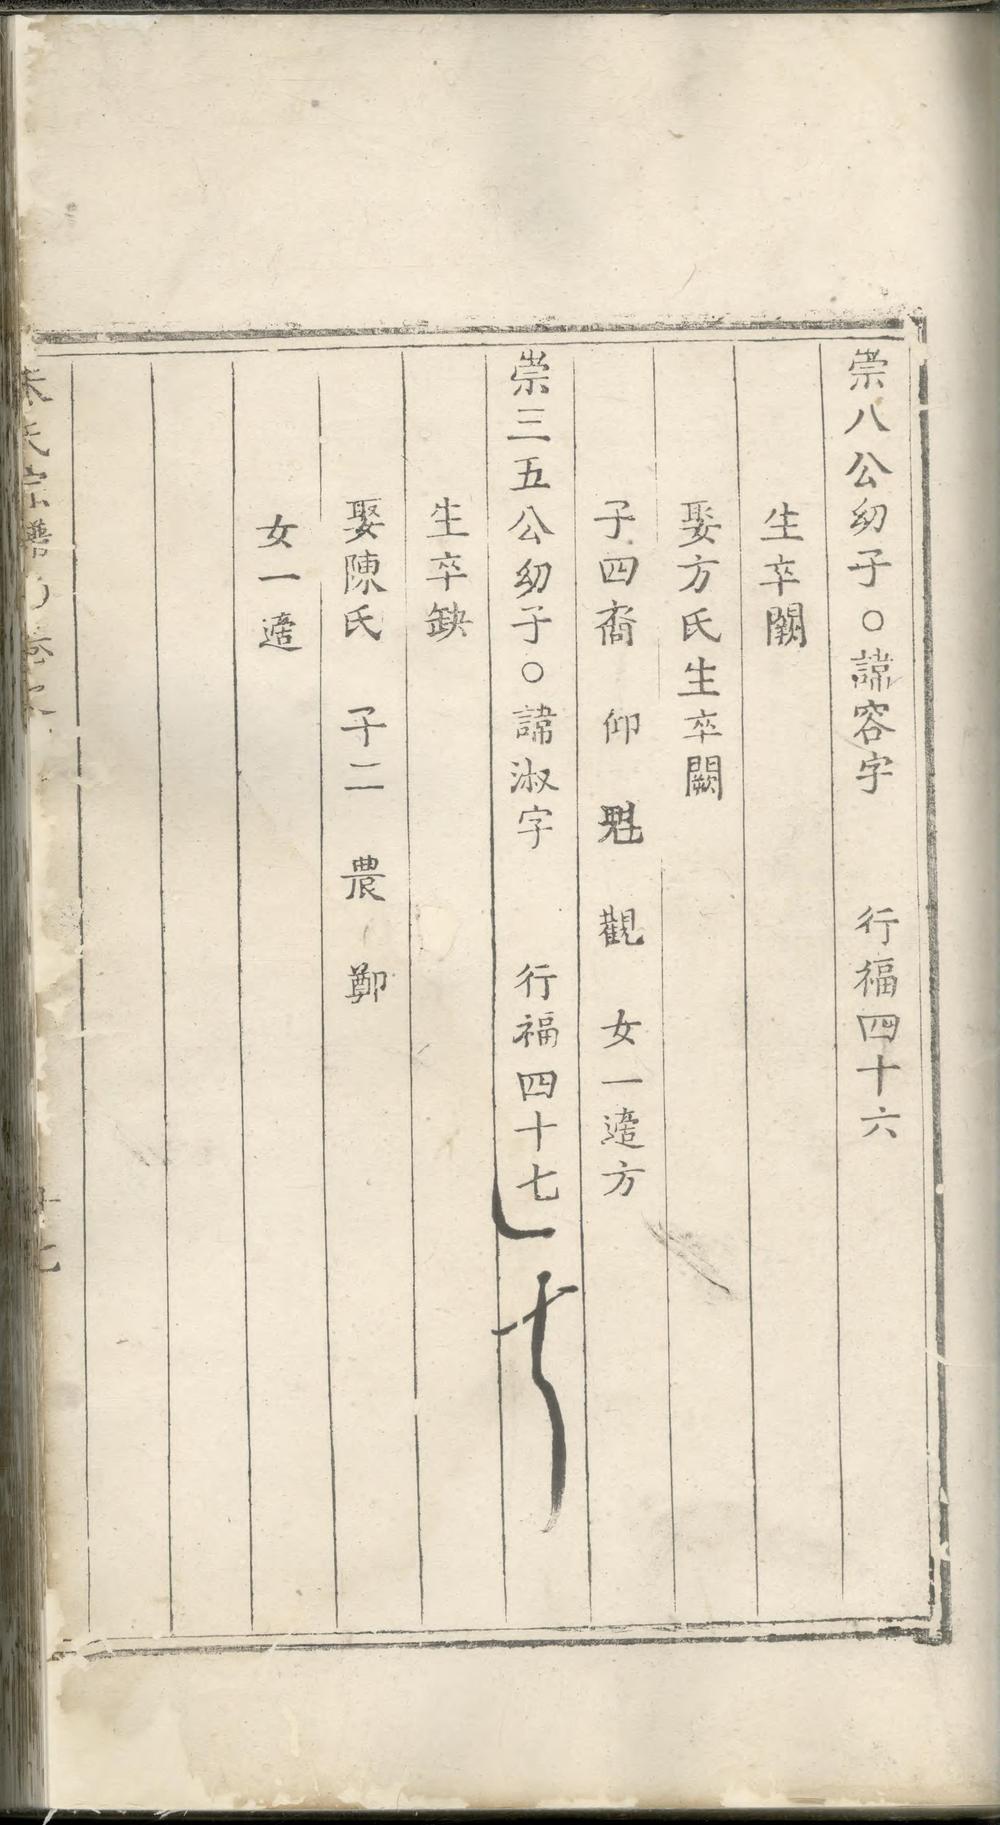 崇八公幼子○諱容字 行福四十六
生卒闕
娶方氏生卒闕
子四裔 仰 魁 觀 女一適方
崇三五公幼子○諱淑字 行福四十七
生卒缺
娶陳氏 子二 農 鄭
女一適
朱氏宗譜